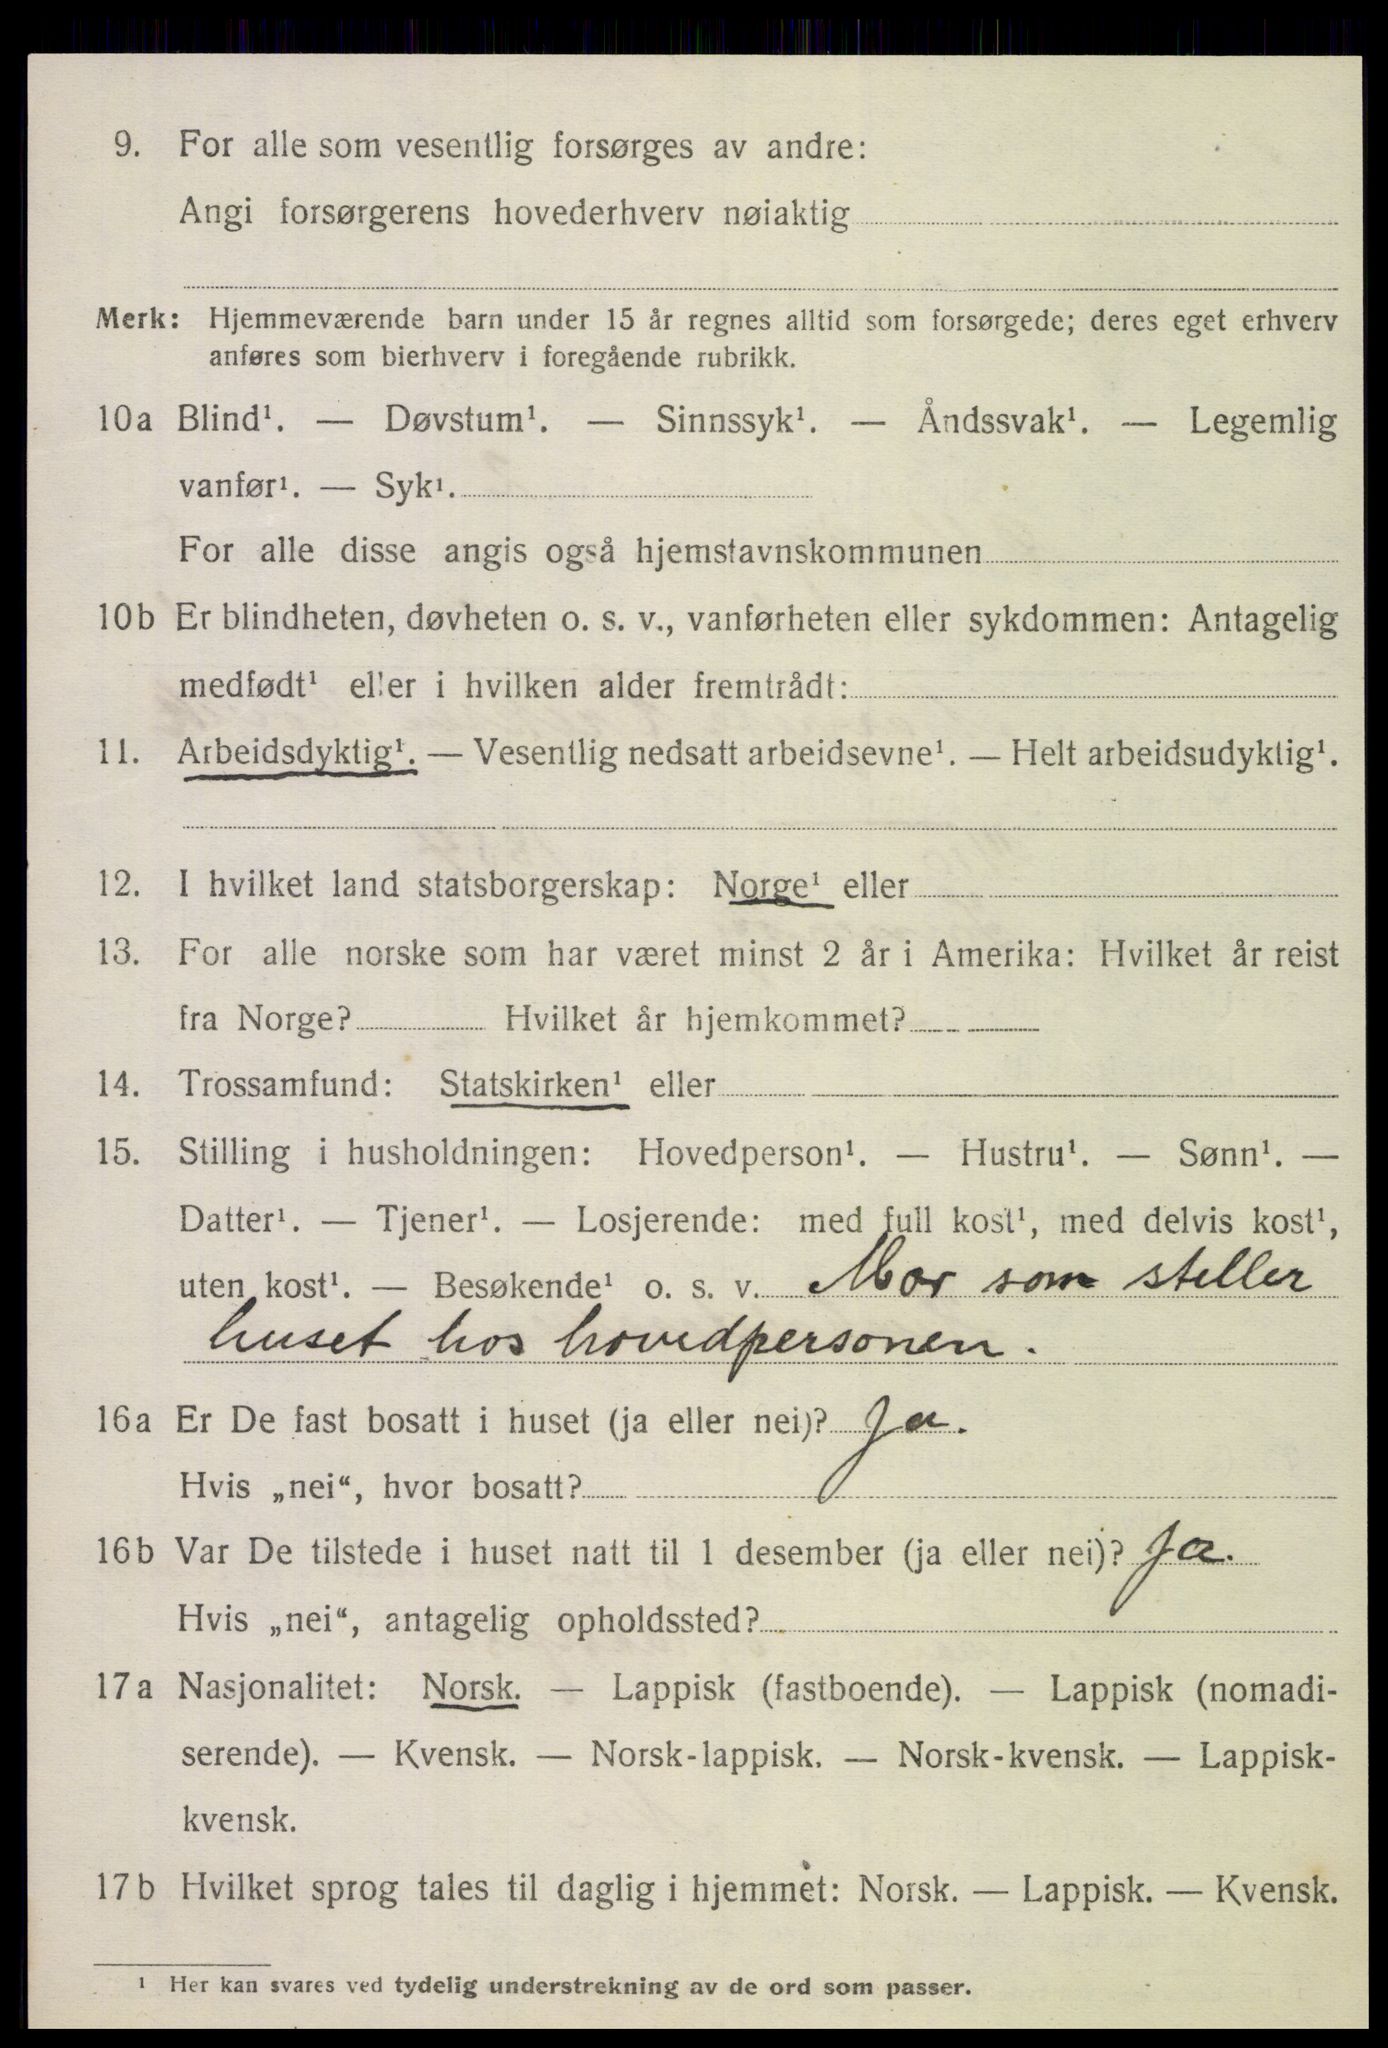 9. For alle som vesentlig forsørges av andre:
Angi forsørgerens hovederhverv nøiaktig
Merk: Hjemmeværende barn under 15 år regnes alltid som forsørgede; deres eget erhverv
anføres som bierhverv i foregående rubrikk.
10a Blind¹. — Døvstum¹. — Sinnssyk¹. — Åndssvak¹. — Legemlig
vanfør¹. — Syk¹.
For alle disse angis også hjemstavnskommunen
10b Er blindheten, døvheten o. s. v., vanførheten eller sykdommen: Antagelig
medfødt¹ eller i hvilken alder fremtrådt:
11. Arbeidsdyktig¹. — Vesentlig nedsatt arbeidsevne¹. — Helt arbeidsudyktig¹.
12. I hvilket land statsborgerskap: Norge¹ eller
13. For alle norske som har været minst 2 år i Amerika: Hvilket år reist
fra Norge? Hvilket år hjemkommet?
14. Trossamfund: Statskirken¹ eller
15. Stilling i husholdningen: Hovedperson¹. — Hustru¹. — Sønn¹. —
Datter¹. — Tjener¹. — Losjerende: med full kost¹, med delvis kost¹,
uten kost¹. — Besøkende¹ o. s. v. Mor som steller
huset hos hovedpersonen.
16a Er De fast bosatt i huset (ja eller nei)? Ja.
Hvis „nei“, hvor bosatt?
16b Var De tilstede i huset natt til 1 desember (ja eller nei)? Ja.
Hvis „nei“, antagelig opholdssted?
17a Nasjonalitet: Norsk. — Lappisk (fastboende). — Lappisk (nomadi-
serende). — Kvensk. — Norsk-lappisk. — Norsk-kvensk. — Lappisk-
kvensk.
17b Hvilket sprog tales til daglig i hjemmet: Norsk. — Lappisk. — Kvensk.
¹ Her kan svares ved tydelig understrekning av de ord som passer.